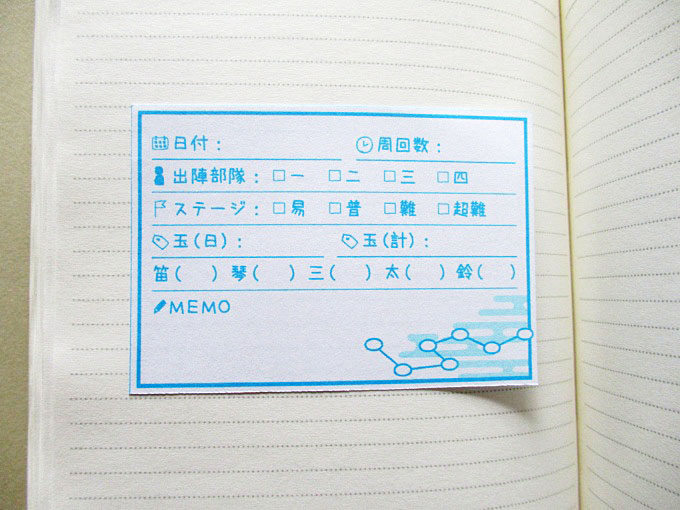 日付： 周回数：
出陣部隊： □一 □二 □三 □四
ステージ： □易 □普 □難 □超難
玉(日)： 玉(計)：
笛( ) 琴( ) 三( ) 太( ) 鈴( )
MEMO